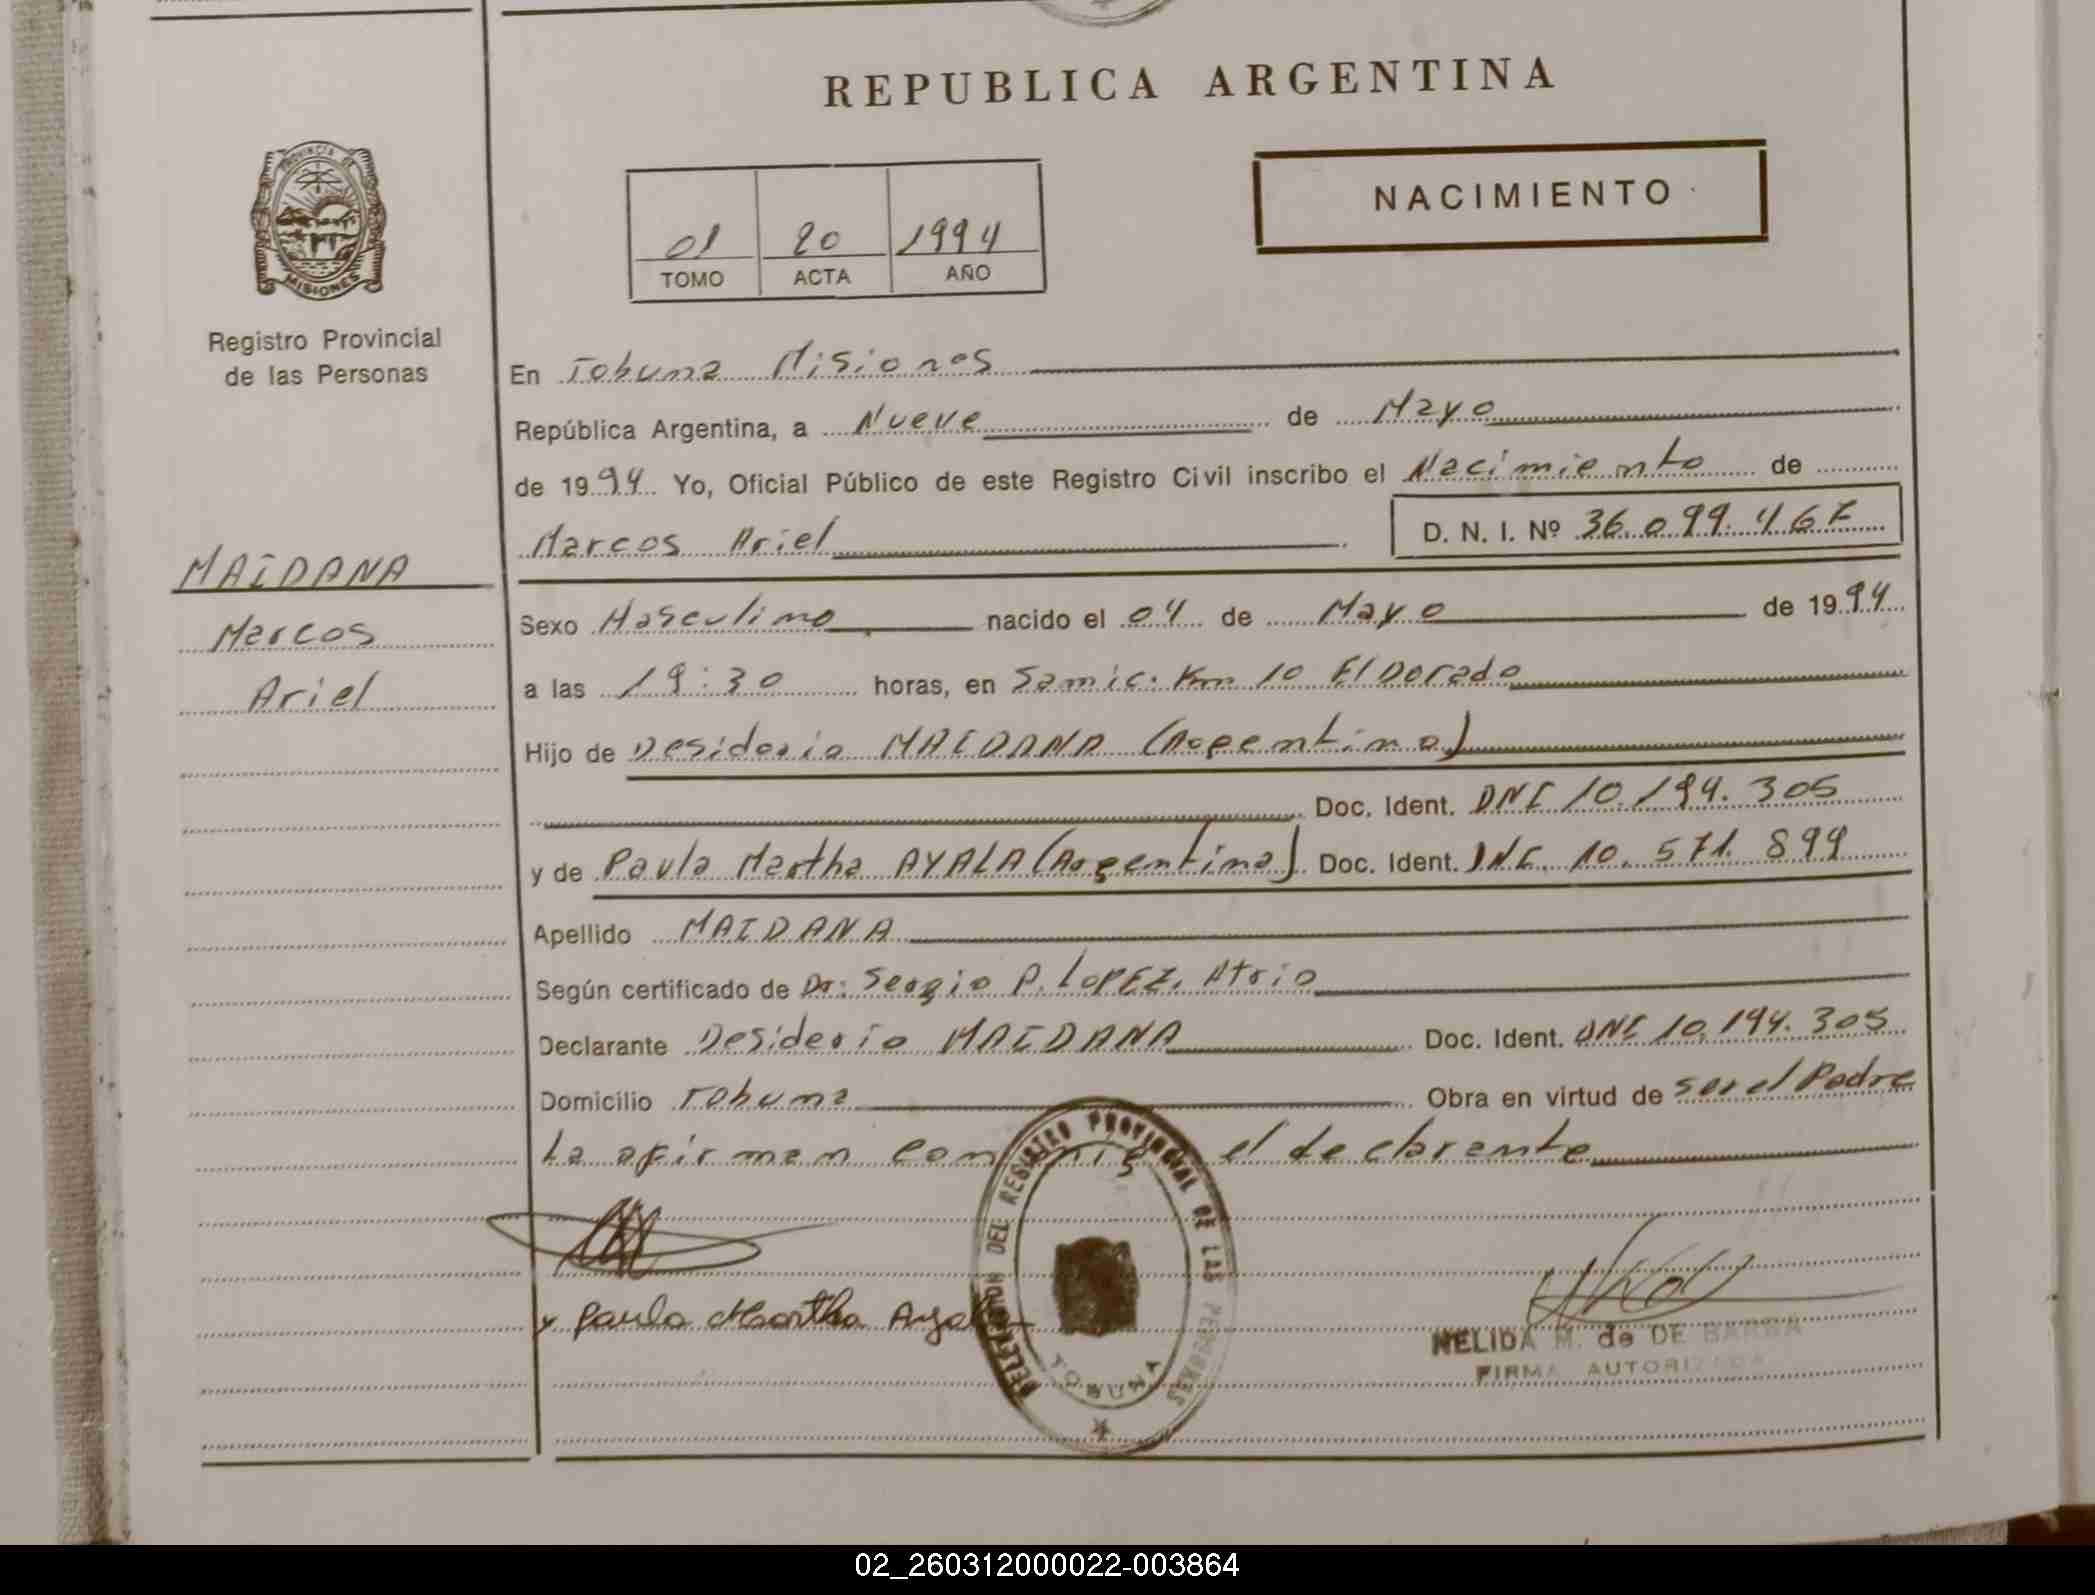 REPUBLICA ARGENTINA
NACIMIENTO
01 20 1994
TOMO ACTA AÑO
PROVINCIA DE
MISIONES
Registro Provincial
de las Personas
MAIDANA
Marcos
Ariel
En Tobuna Misiones
República Argentina, a Nueve de Mayo
de 1994 Yo, Oficial Público de este Registro Civil inscribo el Nacimiento de
Marcos Ariel D. N. I. Nº 36.099.467
Sexo Masculino nacido el 04 de Mayo de 1994
a las 19:30 horas, en Samic. Km 10 ElDorado
Hijo de Desiderio MAIDANA (Argentino)
Doc. Ident. DNI 10.194.305
y de Paula Martha AYALA (Argentina) Doc. Ident. DNI. 10.571.899
Apellido MAIDANA
Según certificado de Dr: Sergio P. LOPEZ. Atrio
Declarante Desiderio MAIDANA Doc. Ident. DNI 10.194.305
Domicilio Tobuna Obra en virtud de ser el Padre
La afirman conmigo el declarante
y Paula Martha Ayala
DELEGACION DEL REGISTRO PROVINCIAL DE LAS PERSONAS
TOBUNA
NELIDA M. de DE BARBA
FIRMA AUTORIZADA
02_260312000022-003864